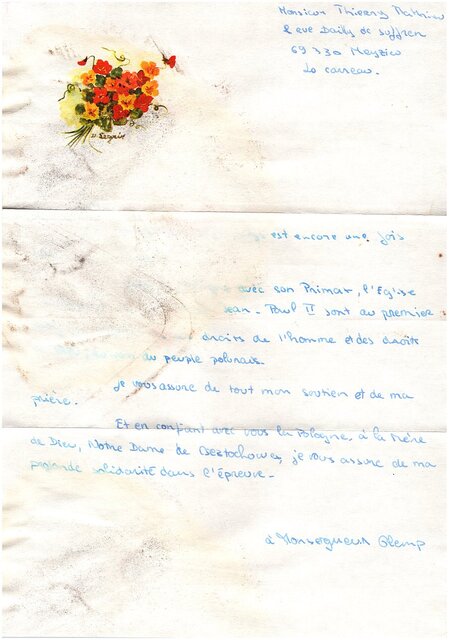 Monsieur Thierry Mathieu
rue Bailly de Suffren
69330 Meyzieu
Le carreau.
est encore une fois
avec son Primat, l'Eglise
Jean-Paul II sont au premier
droits de l'homme et des droits
du peuple polonais.
je vous assure de tout mon soutien et de ma
prière.
Et en confiant avec vous la Pologne, à la Mère
de Dieu, Notre Dame de Czestochowa, je vous assure de ma
profonde solidarité dans l'épreuve.
à Monseigneur Glemp